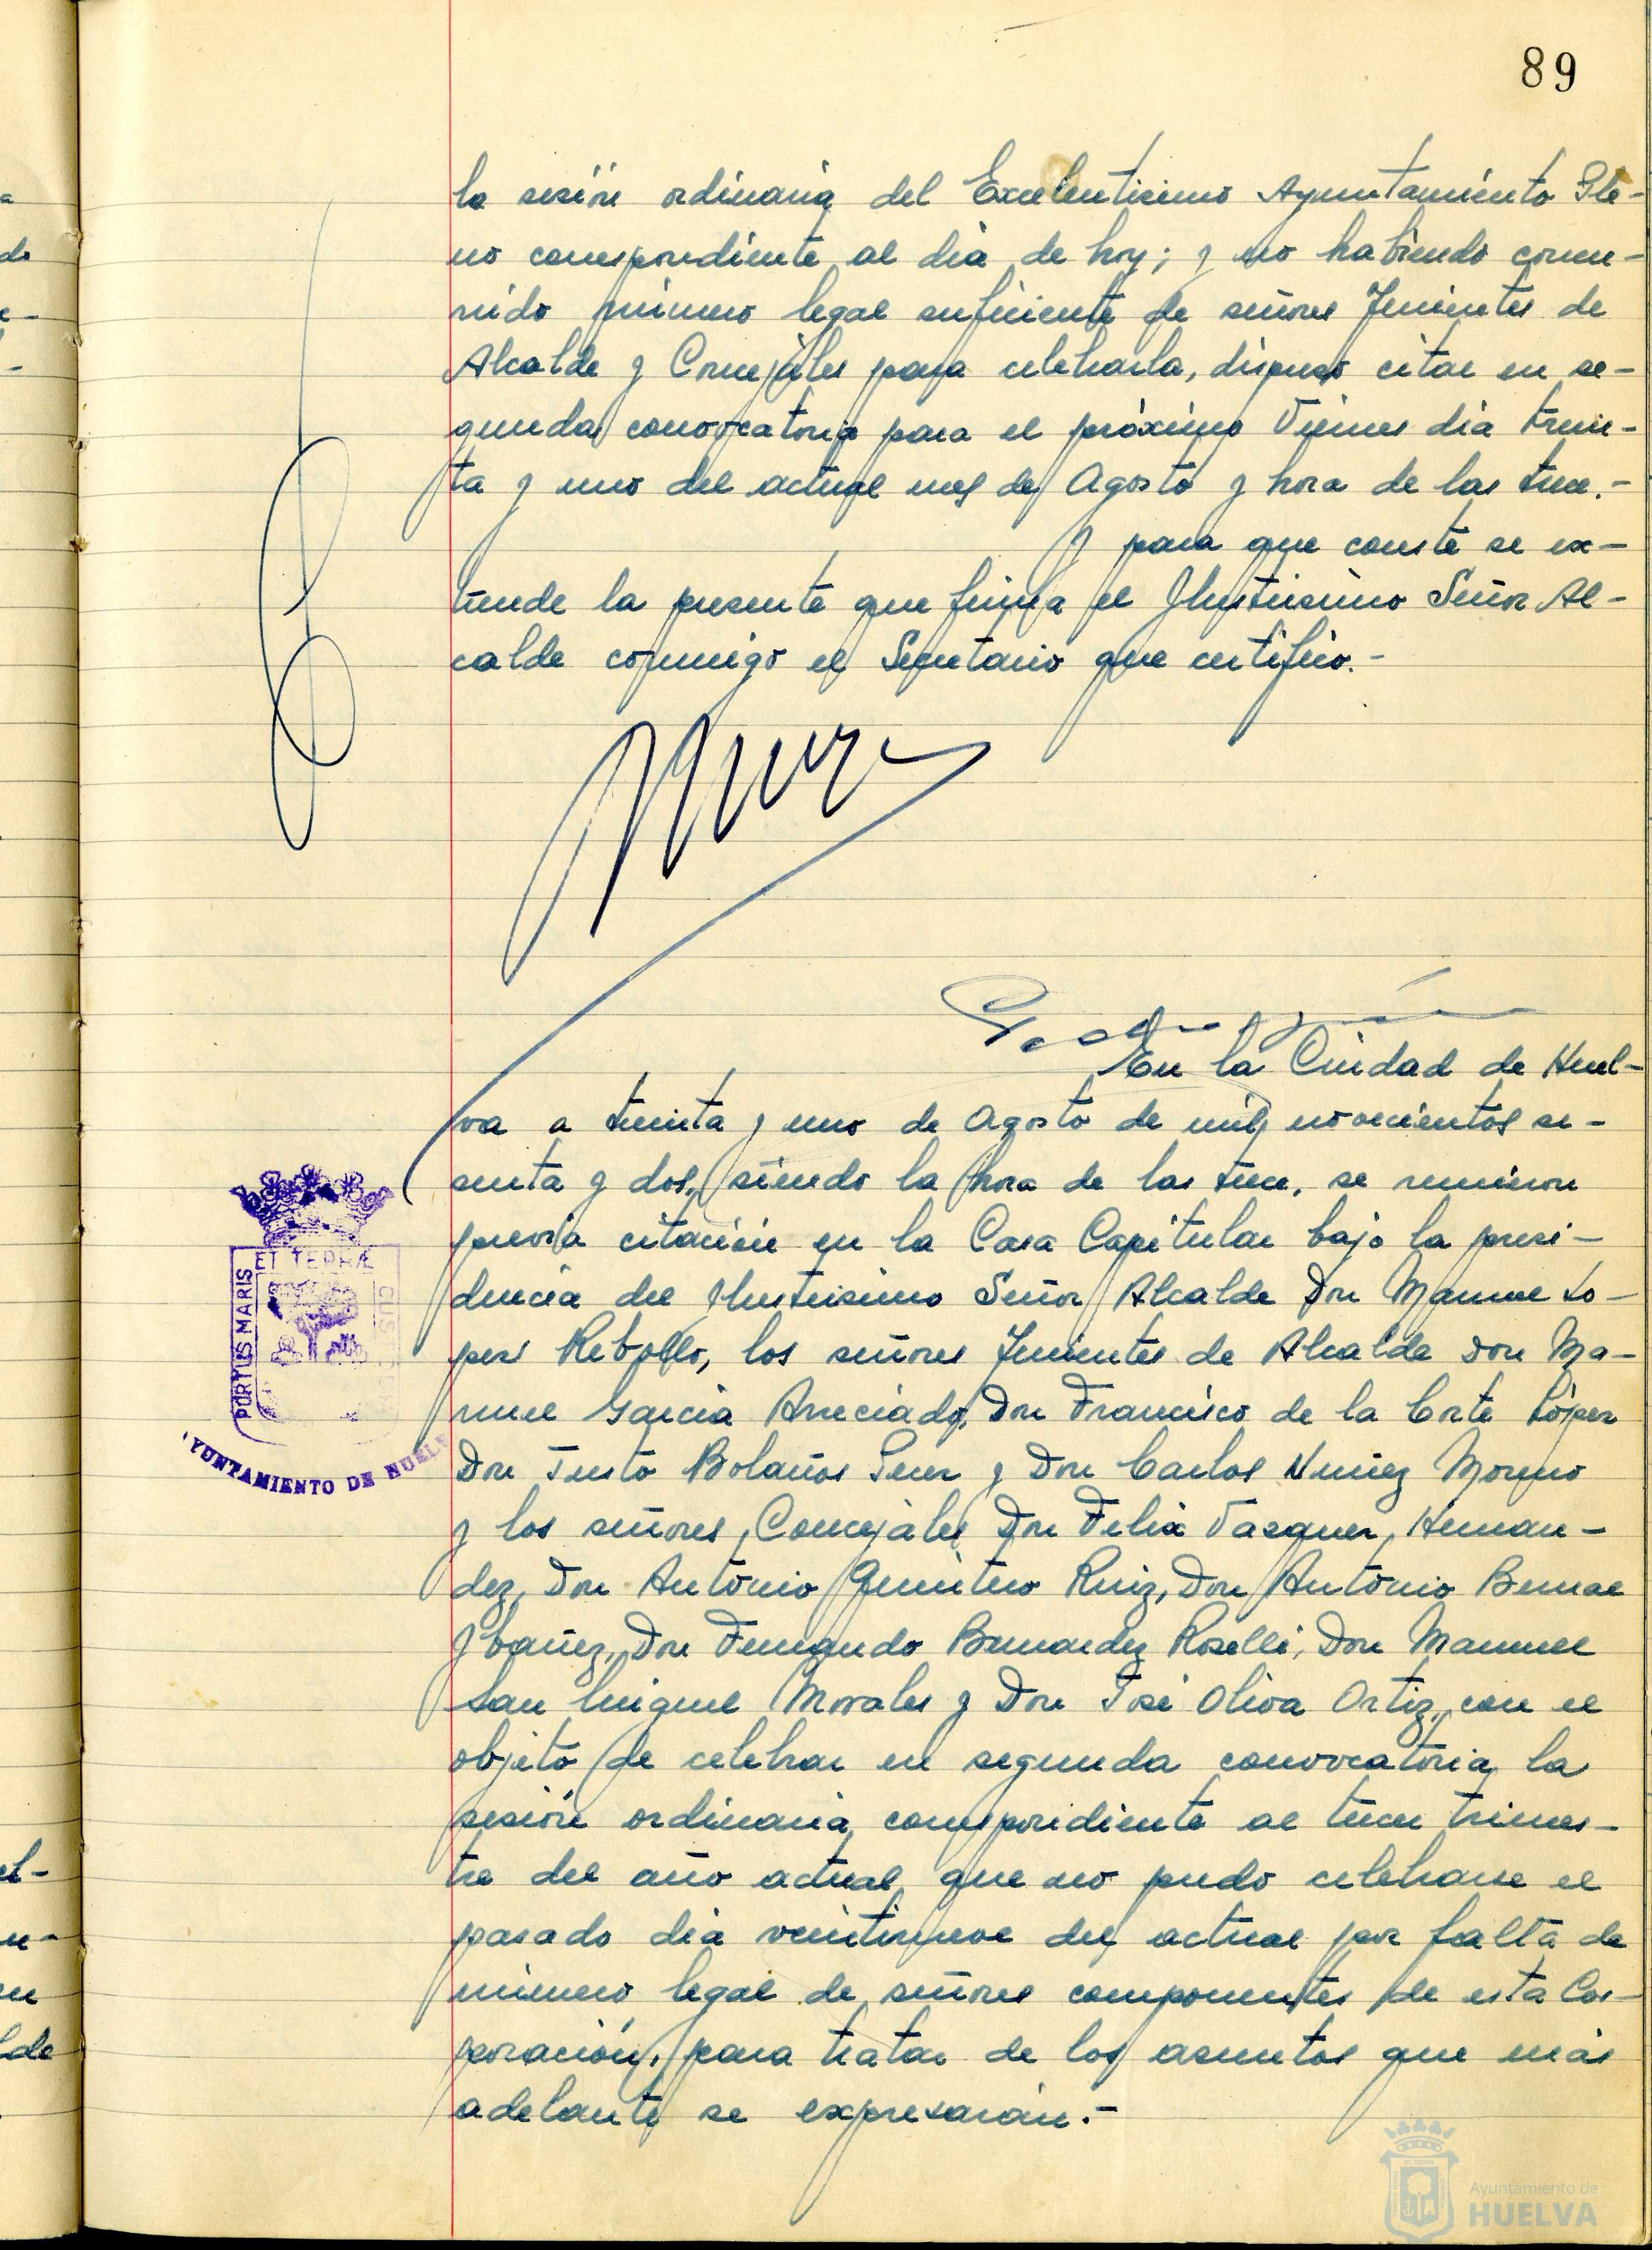 89
la sesión ordinaria del Excelentisimo Ayuntamiento Ple-
no correspondiente al dia de hoy; y no habiendo concu-
rrido número legal suficiente de señores Tenientes de
Alcalde y Concejales para celebrarla, dispuso citar en se-
gunda convocatoria para el próximo Viernes dia trein-
ta y uno del actual mes de Agosto y hora de las trece.-
Y para que conste se ex-
tiende la presente que firma el Ilustrisimo Señor Al-
calde conmigo el Secretario que certifico.-
En la Ciudad de Huel-
va a treinta y uno de Agosto de mil novecientos se-
senta y dos, siendo la hora de las trece, se reunieron
previa citación en la Casa Capitular bajo la presi-
dencia del Ilustrisimo Señor Alcalde Don Manuel Lo-
pez Rebollo, los señores Tenientes de Alcalde Don Ma-
nuel Garcia Arreciado, Don Francisco de la Corte López
Don Justo Bolaños Perez y Don Carlos Nuñez Moreno
y los señores Concejales Don Felix Vazquez Hernan-
dez, Don Antonio Quintero Ruiz, Don Antonio Bernal
Ybañez, Don Fernando Bermudez Roselli, Don Manuel
San Miguel Morales y Don José Oliva Ortiz, con el
objeto de celebrar en segunda convocatoria la
sesión ordinaria correspondiente al tercer trimes-
tre del año actual que no pudo celebrarse el
pasado dia veintinueve del actual por falta de
número legal de señores componentes de esta Cor-
poración, para tratar de los asuntos que más
adelante se expresarán.-
PORTUS MARIS
ET TERRÆ
CUS
AYUNTAMIENTO DE HUELV
Ayuntamiento de
HUELVA